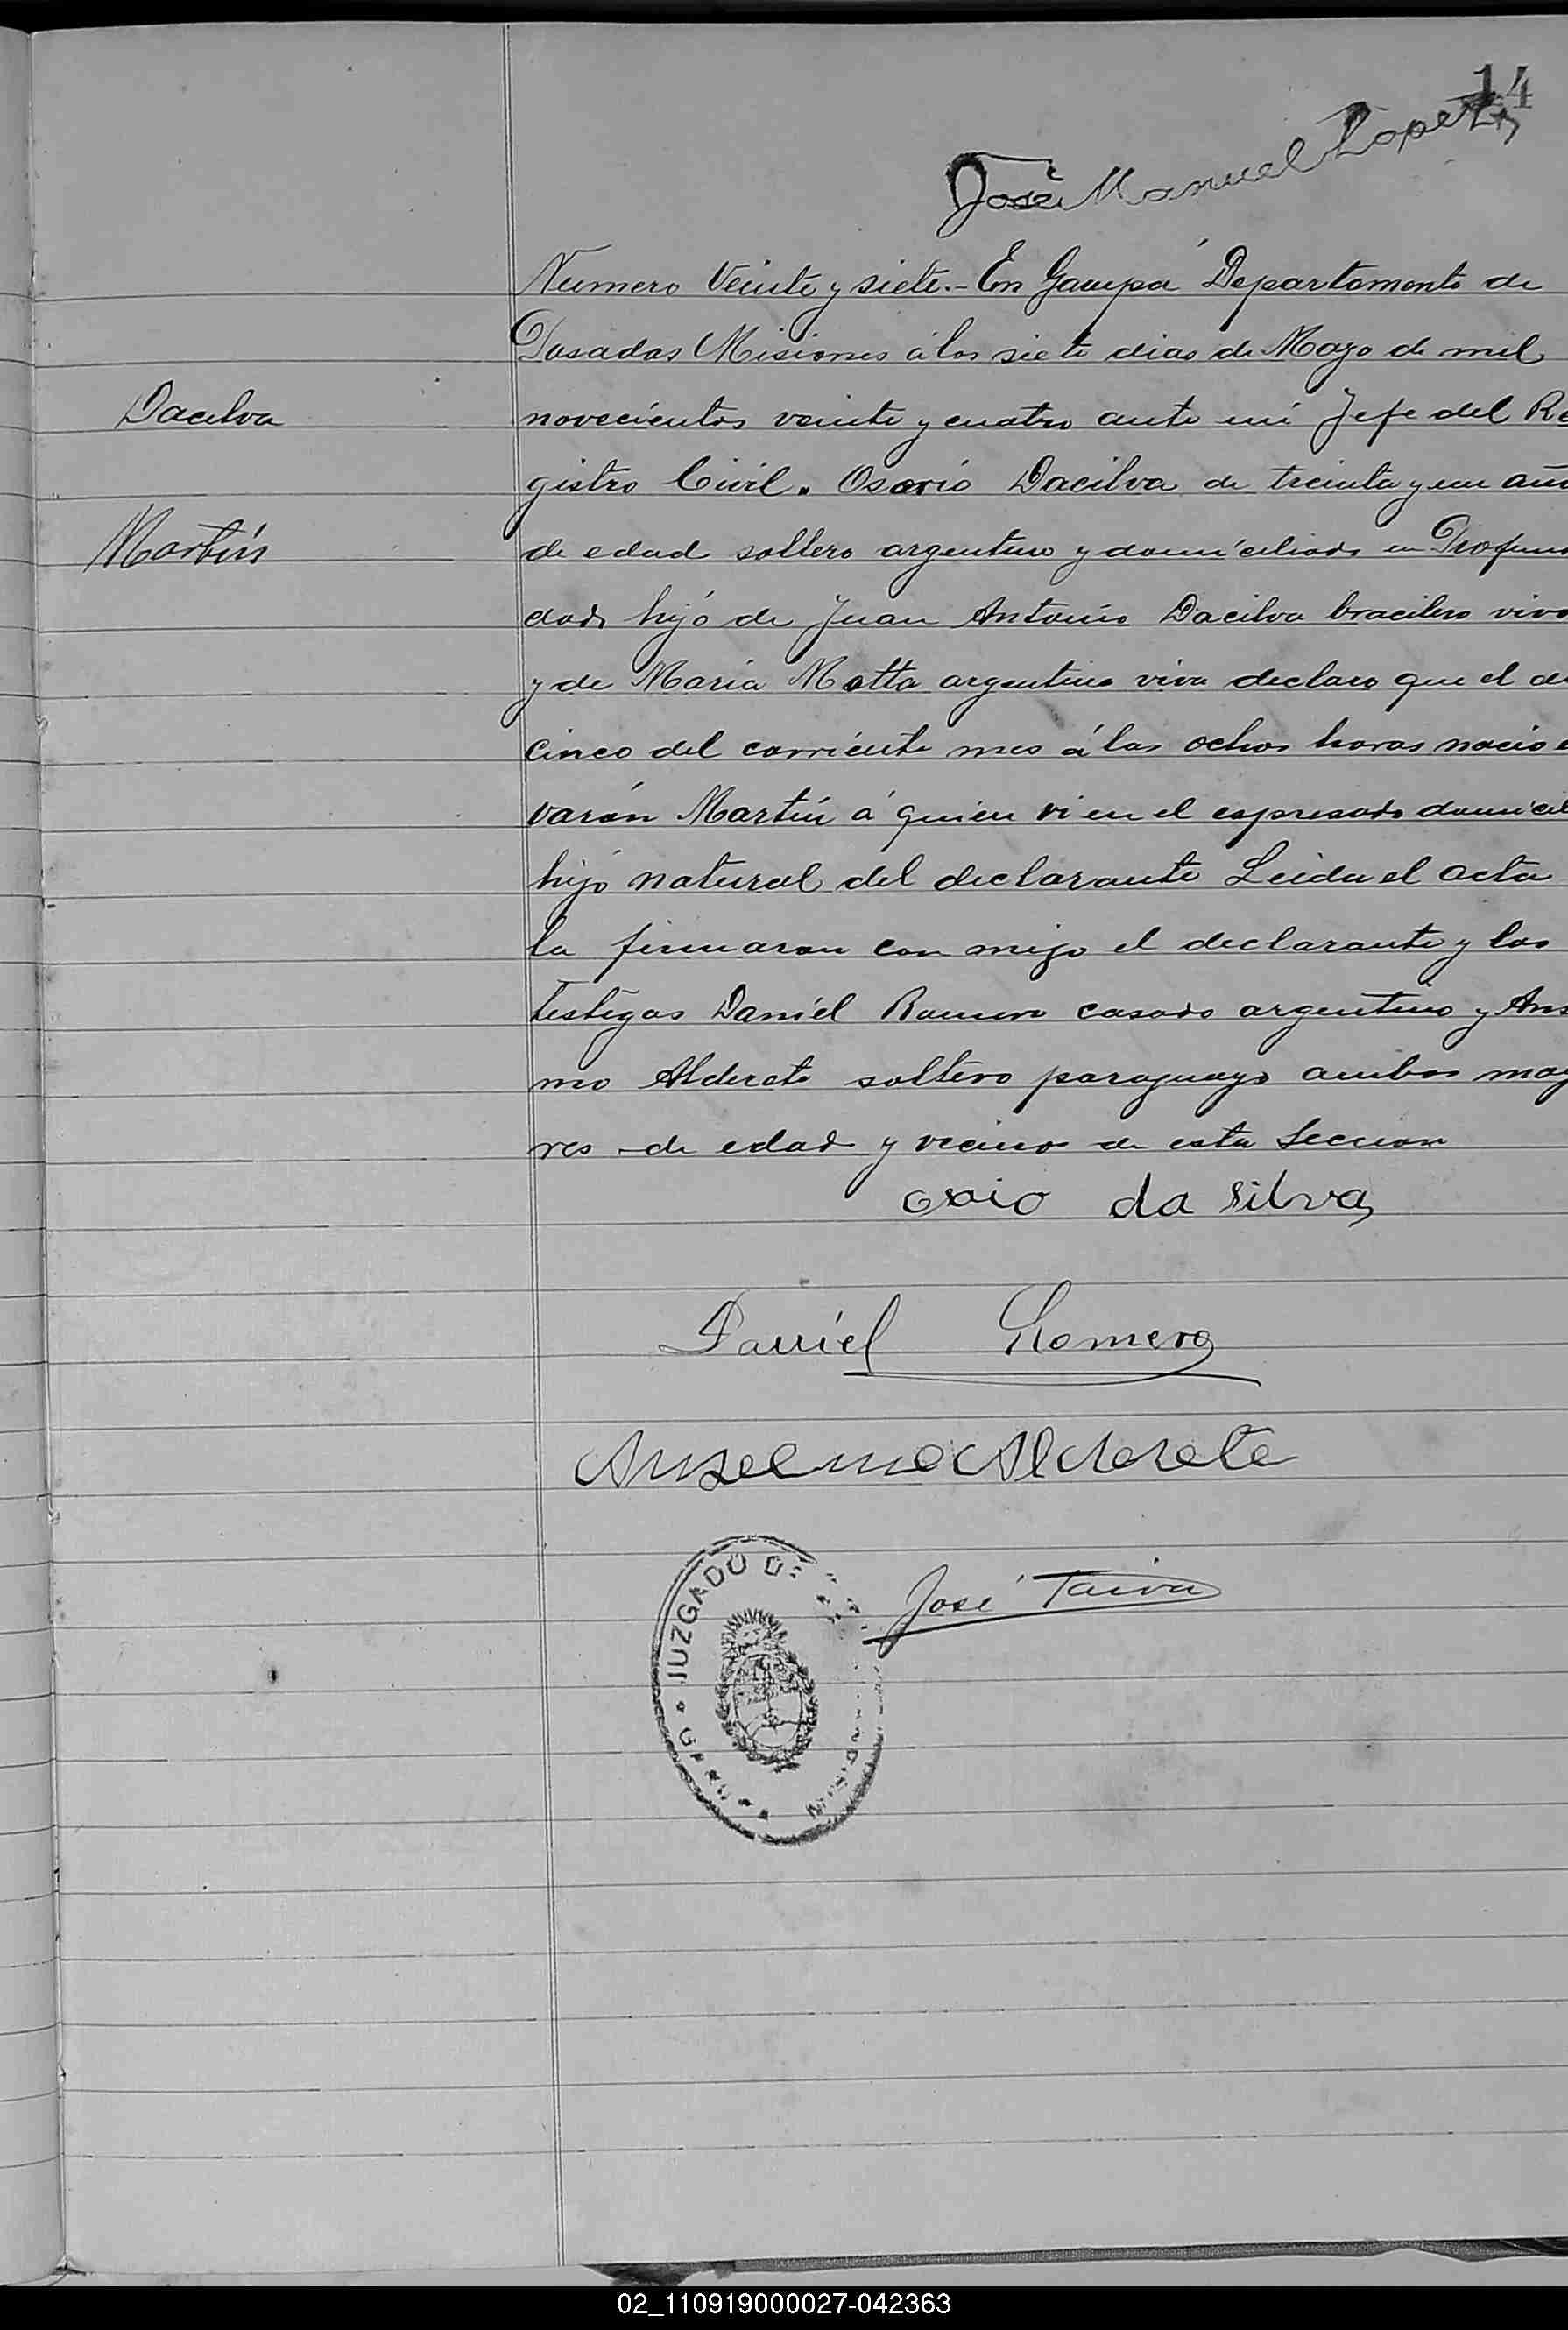 14
José Manuel Lopez
Numero Veinte y siete.- En Garupá Departamento de
Posadas Misiones á los siete dias de Mayo de mil
Dacilva
novecientos veinte y cuatro ante mi Jefe del Re
gistro Civil. Osorio Dacilva de treinta y un año
Martín
de edad soltero argentino y domiciliado en Profun
dad hijo de Juan Antonio Dacilva bracilero vivo
y de María Motta argentina viva declaro que el di
cinco del corriente mes á las ochos horas nacio e
varón Martín á quien vi en el espresado domicil
hijo natural del declarante Leida el acta
la firmaron con migo el declarante y los
testigos Daniel Romero casado argentino y Ans
mo Alderete soltero paraguayo ambos may
res de edad y vecinos de esta Seccion
osoio da silva
Daniel Romero
Anselmo Alderete
JUZGADO DE
José Paiva
02_110919000027-042363